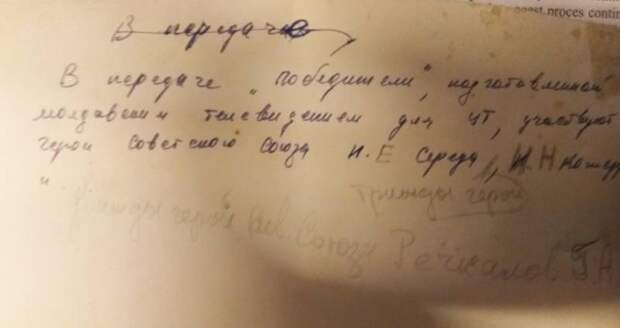 proces contin
В передаче
В передаче „Победители“, подготовленной
молдавским телевидением для ЦТ, участвуют
герои Советского Союза И.Е Середа, Н
и
трижды герой
дважды герой Сов Союза Речкалов Г.А